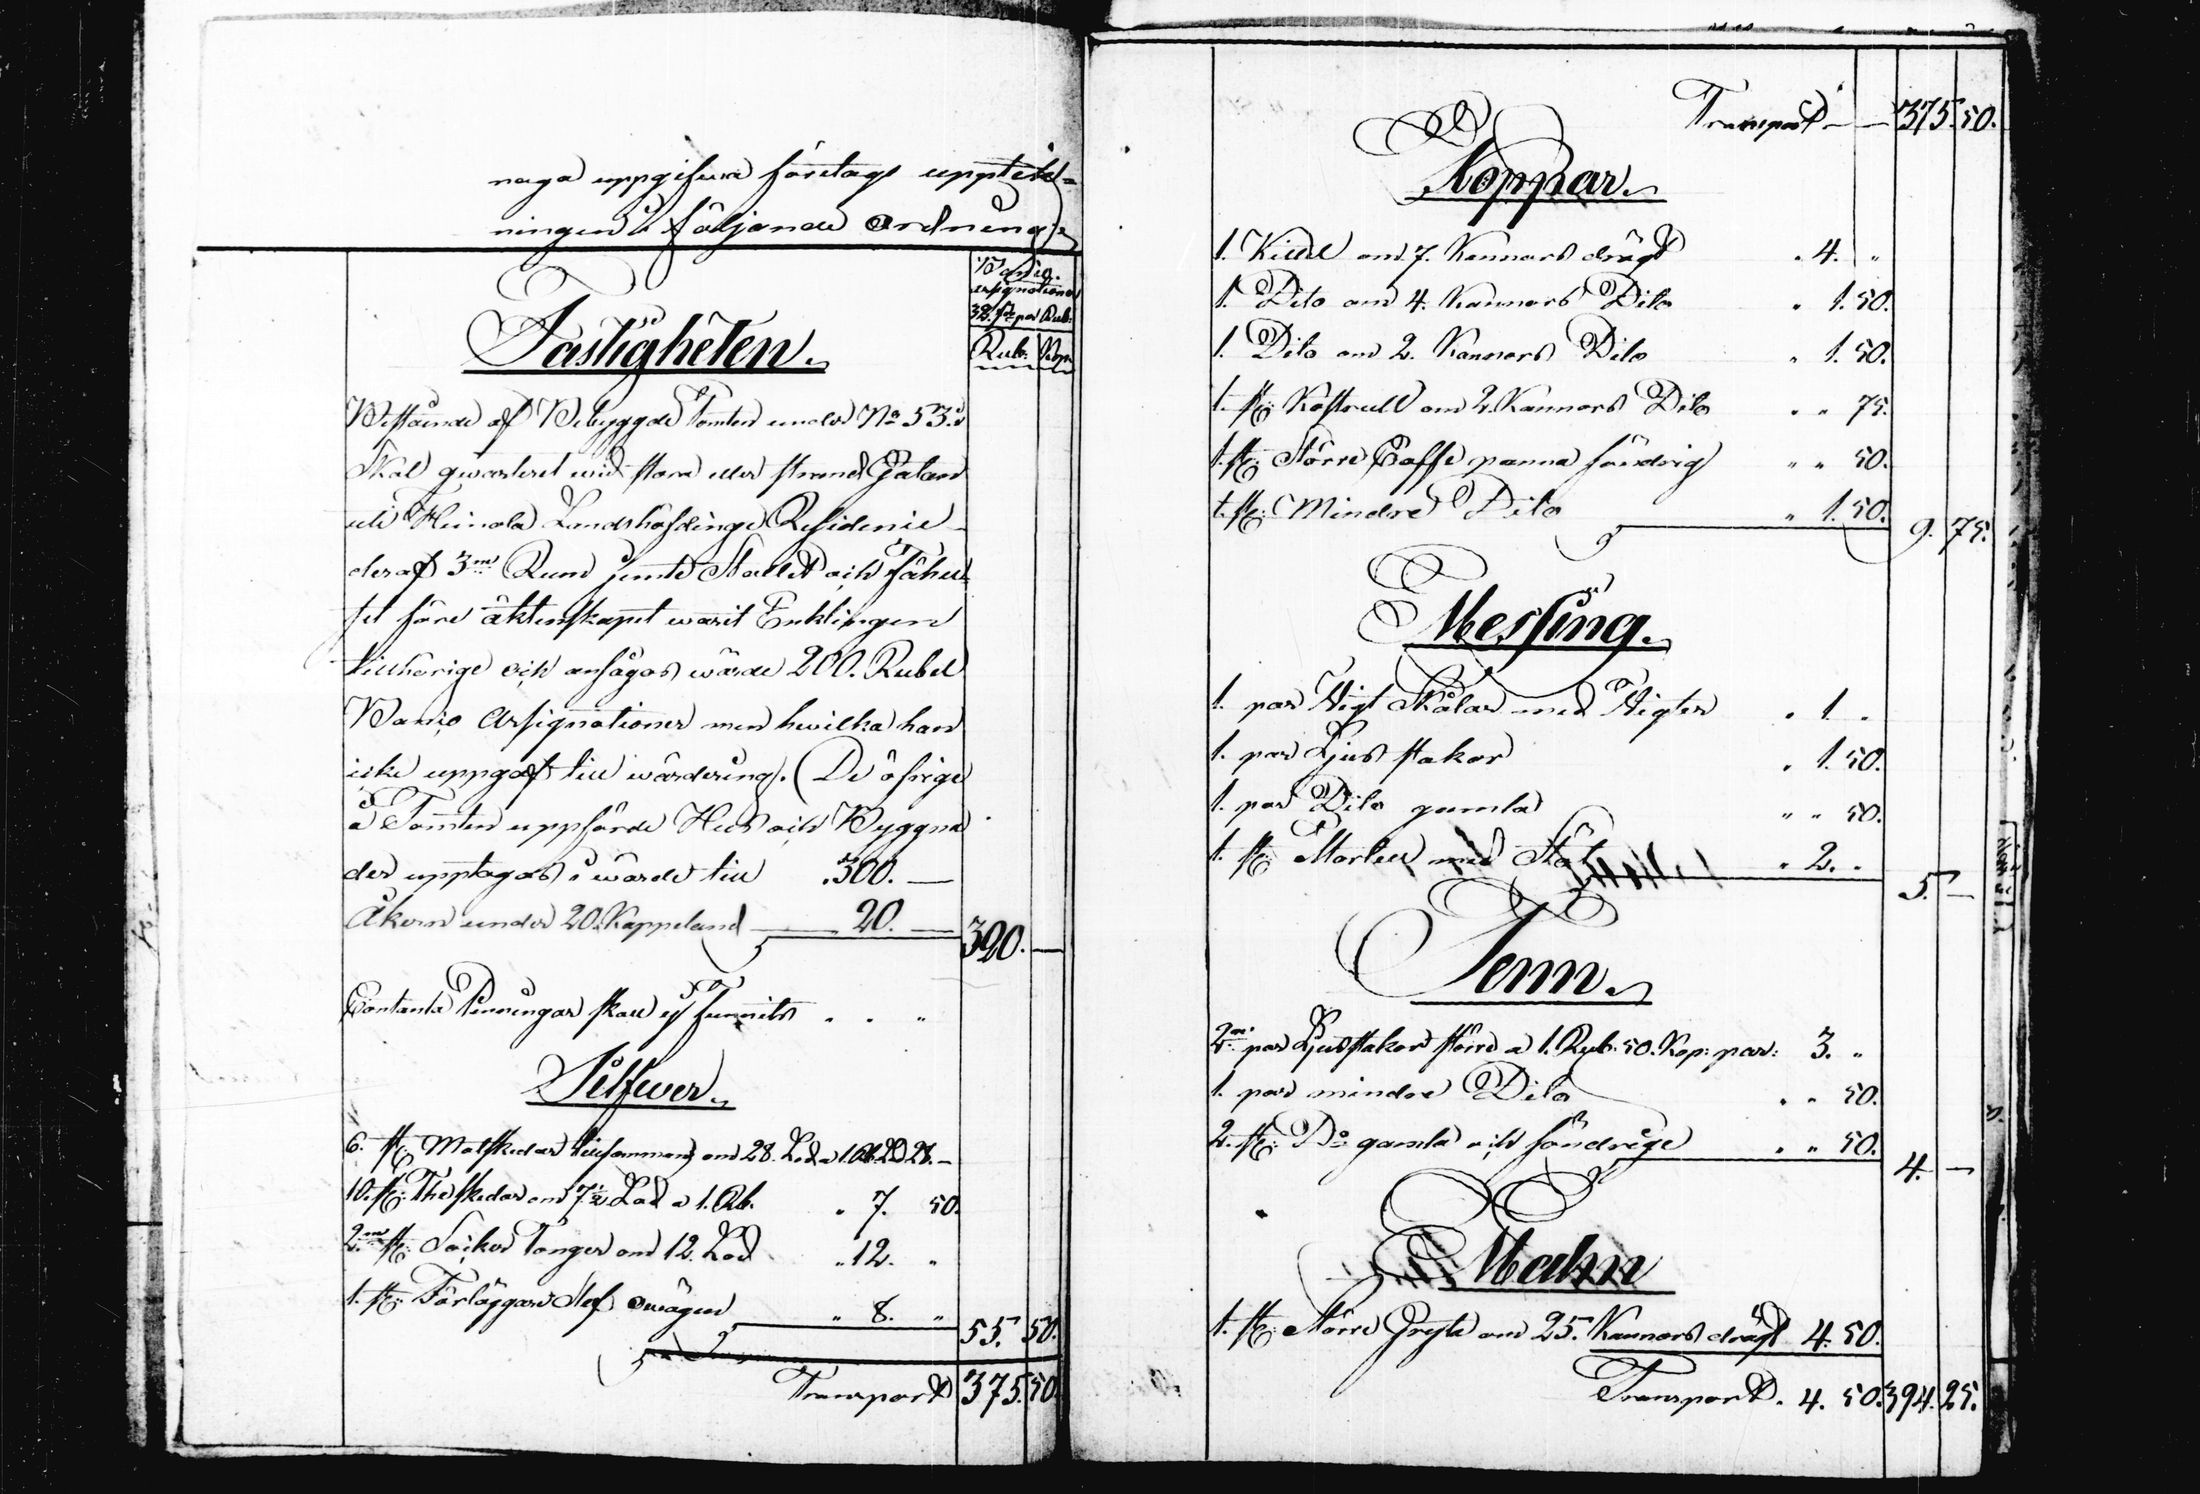 naga uppgifwa företags uppteck-
ningen i följande Ordning:
Banco
assignationer
Rub. Kop.
Fastigheten.
Bestående af Bebyggde Tomten under No 53. i
gwarteret wid stora eller strand Gatan
uti Heinola Landshöfdinge Residence
deraf 3ne Rum jemte Stallet och Fähu-
set före äktenskapet warit Enklingen
tillhörige och ansågos wärde 200. Rubel
Banco Assignationer men hwilka han
icke uppgaf till wärdering. (De öfrige
å Tomten uppförde Hus och Byggna
der upptagas i wärde till 300. —
Åkern under 20. Kappeland — 20. — 320. —
Contanta Penningar skall ej funnits " " "
Silfwer.
6. st: Matskedar tillsammans om 28. Lod a 1. Rb. 28. —
10. st: Theskedar om 7½ Lod a 1. Rb. " 7. 50.
2ne st: Socker Tänger om 12. Lod " 12. "
1. st: Förläggare Slef owägen " 8. " 55. 50.
Transport 375. 50.
Transport — — 375. 50.
Koppar.
1. Kittel om 7. Kannors drägt " 4. "
1. Dito om 4. Kannors Dito " 1. 50.
1. Dito om 2. Kannors Dito " 1. 50.
1. st: Kastrull om 2. Kannors Dito " " 75.
1. st: Större Caffe panna söndrig " " 50.
1. st: Mindre Dito " 1. 50. 9. 75.
Messing.
1. par Wigt Skålar med Wigter " 1. "
1. par Ljus stakar " 1. 50.
1. par Dito gamla " " 50.
1. st: Mortel med Stöt " 2. " 5. —
Tenn.
2ne par Ljusstakar större a 1. Rub. 50. Kop: par: 3. "
1. par mindre Dito " " 50.
2. st: Do gamla och söndrige " " 50. 4. —
Malm
1. st: Större Gryta om 25. Kannors drägt 4. 50.
Transport. 4. 50. 394. 25.